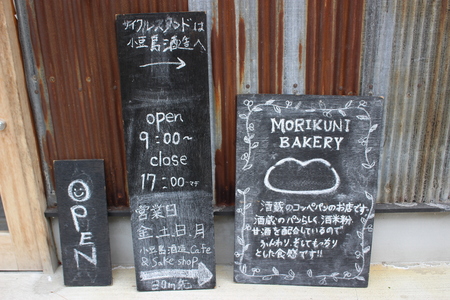 OPEN
サイクルスタンドは
小豆島酒造へ
→
open
9:00~
close
17:00まで
営業日
金,土,日,月
小豆島酒造.Cafe
& Sake shop
20m先
MORIKUNI
BAKERY
酒蔵のコッペパンのお店です。
酒蔵のパンらしく、酒米粉、
甘酒を配合しているので
ふんわり、そしてもっちり
とした食感です!!